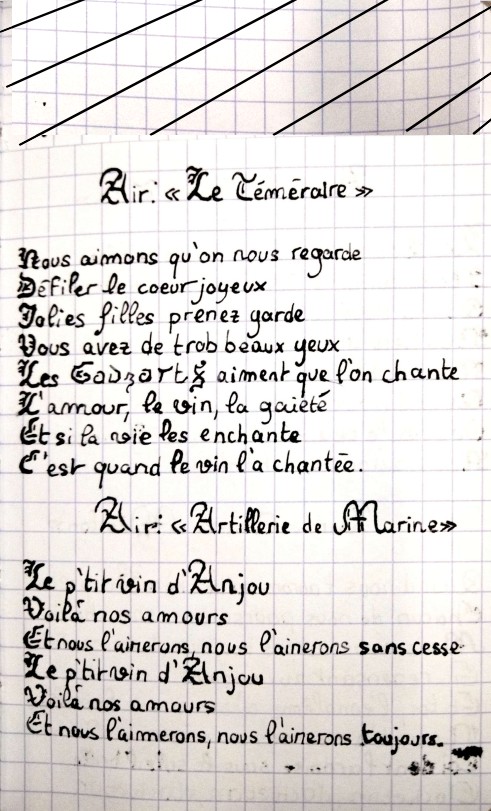 Air: « Le Téméraire »
Nous aimons qu'on nous regarde
Défiler le coeur joyeux
Jolies filles prenez garde
Vous avez de trob beaux yeux
Les Gadzarts aiment que l'on chante
L'amour, le vin, la gaieté
Et si la vie les enchante
C'est quand le vin l'a chantée.
Air: « Artillerie de Marine »
Le p'tit vin d'Anjou
Voilà nos amours
Et nous l'aimerons, nous l'aimerons sans cesse
Le p'tit vin d'Anjou
Voilà nos amours
Et nous l'aimerons, nous l'aimerons toujours.